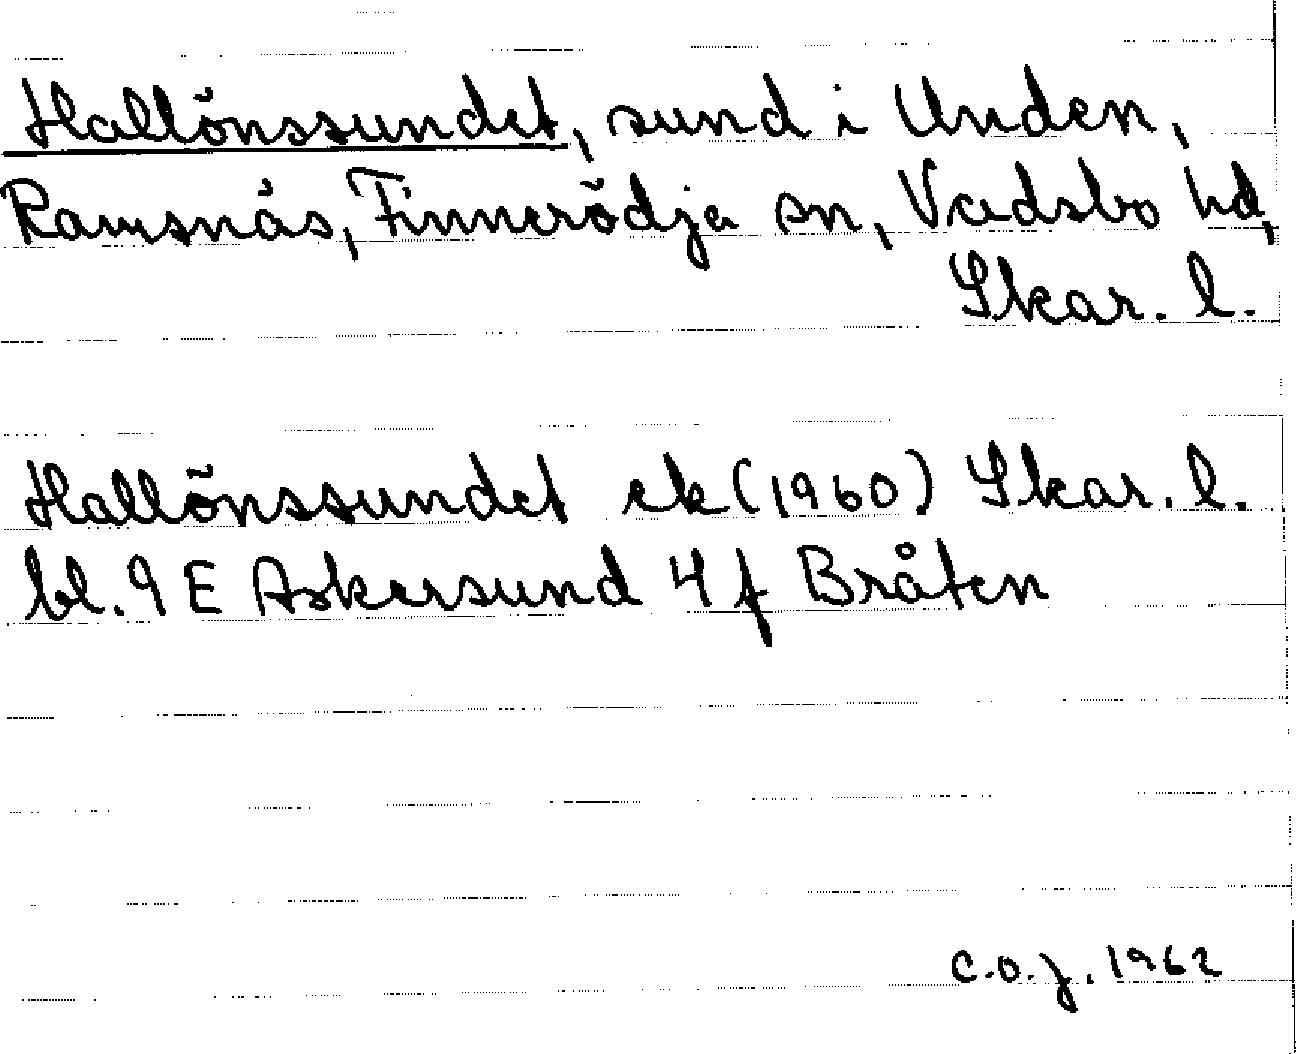 Hallönssundet, sund i Unden,
Ramsnäs, Finnerödja sn, Vadsbo hd,
Skar. l.
Hallönssundet ek (1960) Skar. l.
bl. 9 E Askersund 4 f Bråten
C.O.J. 1962